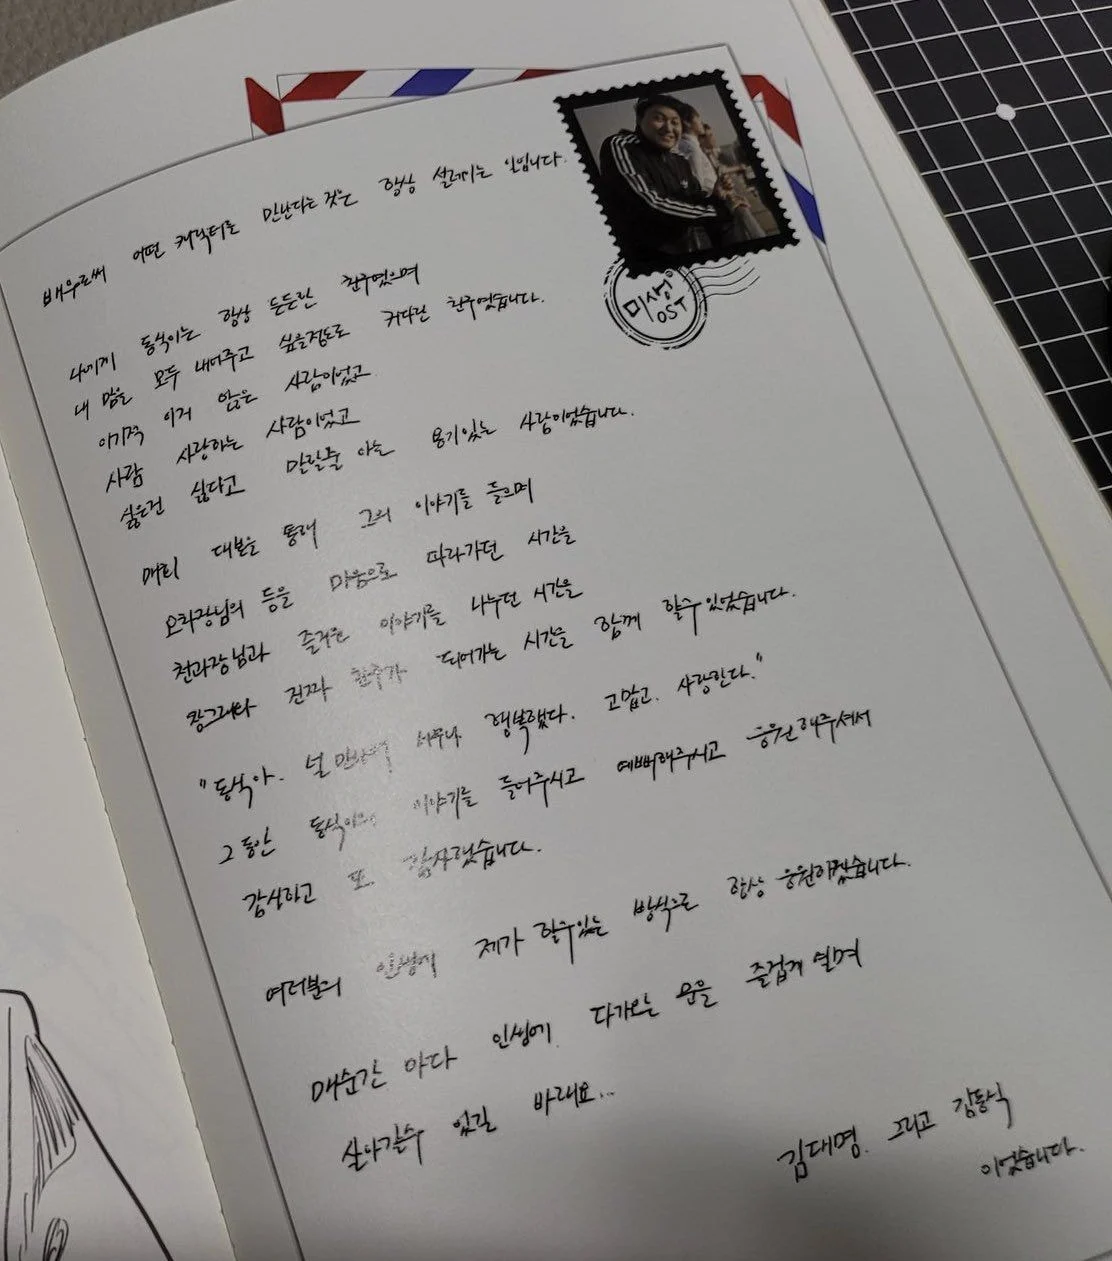 배우로써 어떤 캐릭터를 만난다는 것은 항상 설레이는 일입니다.
미생
OST
나에게 동식이는 항상 든든한 친구였으며
내 맘을 모두 내어주고 싶을정도로 커다란 친구였습니다.
이기적 이지 않은 사람이었고
사람 사랑하는 사람이었고
싫은건 싫다고 말할줄 아는 용기있는 사람이었습니다.
매회 대본을 통해 그의 이야기를 들으며
오차장님의 등을 마음으로 따라가던 시간을
천과장님과 즐거운 이야기를 나누던 시간을
장그래와 진짜 친구가 되어가는 시간을 함께 할수있었습니다.
"동식아. 널 만나서 너무나 행복했다. 고맙고. 사랑한다."
그동안 동식이의 이야기를 들어주시고 예뻐해주시고 응원해주셔서
감사하고 또 감사했습니다.
여러분의 인생에 제가 할수있는 방식으로 항상 응원하겠습니다.
매순간 마다 인생에 다가오는 문을 즐겁게 열며
살아갈수 있길 바래요...
김대명. 그리고 김동식
이었습니다.